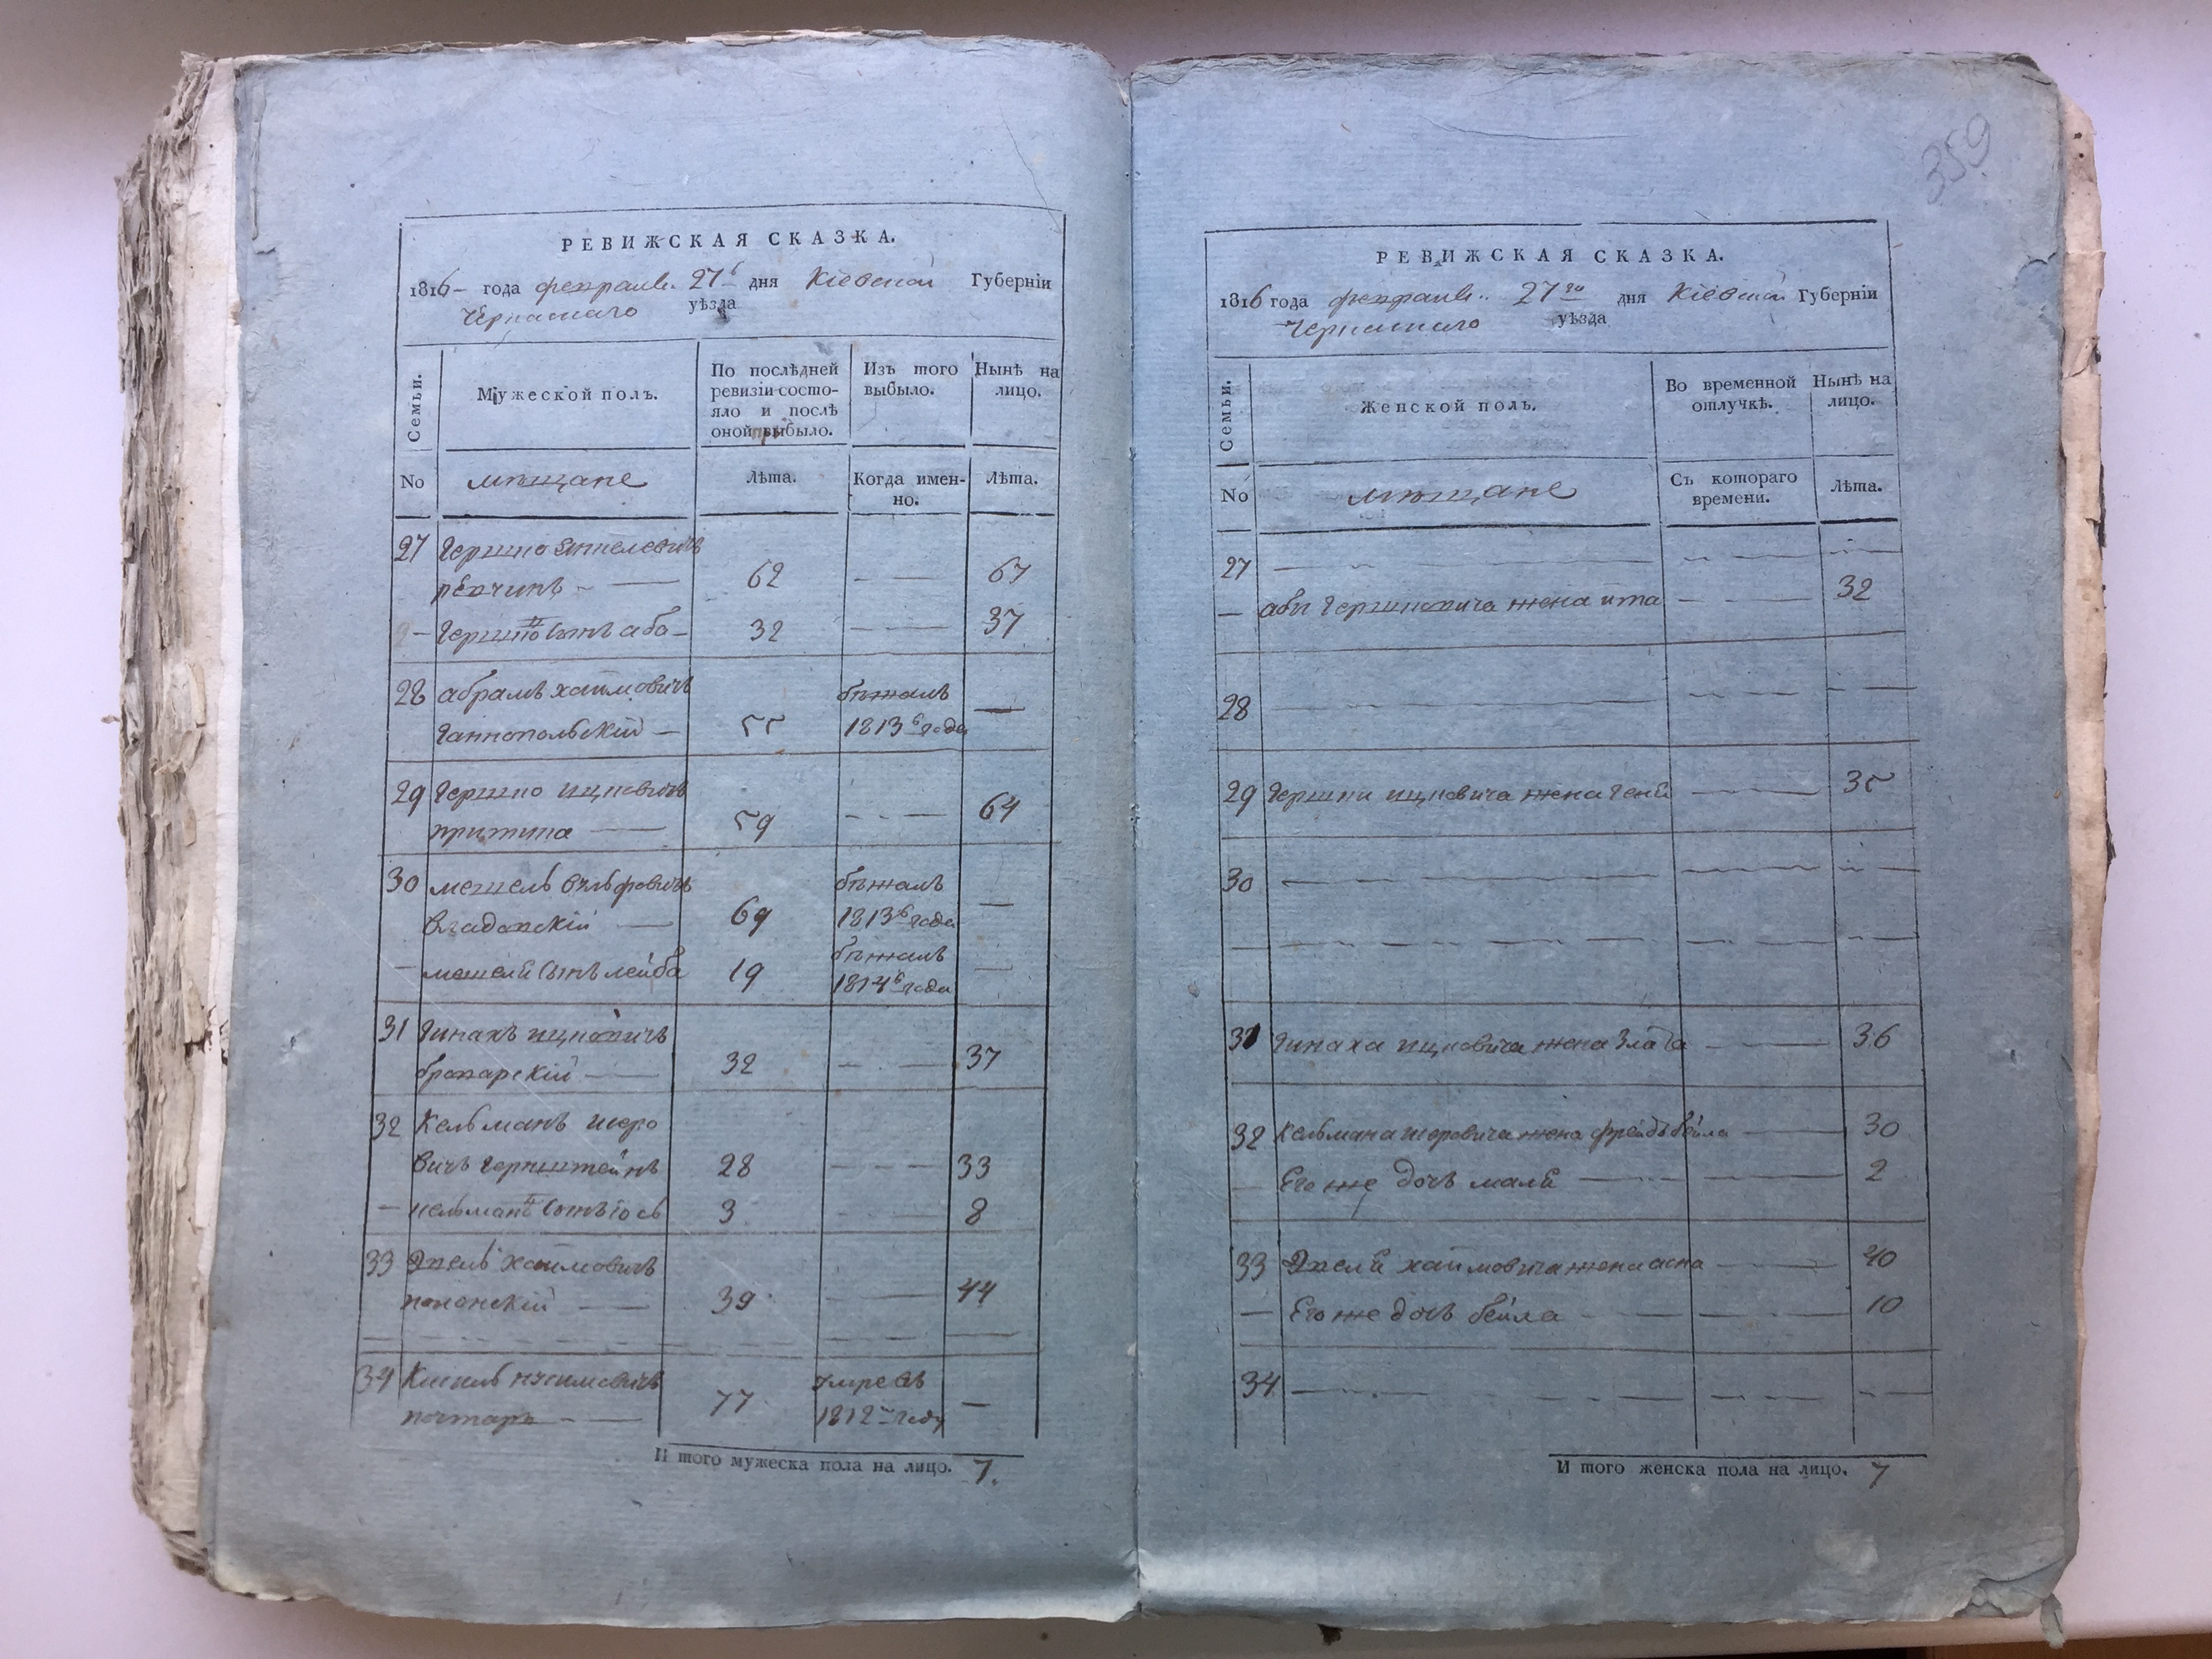 359
РЕВИЖСКАЯ СКАЗКА.
1816 года февраля 27 дня Кіевской Губерніи
Черкаскаго уѣзда
Семьи.
Мужеской полъ.
По послѣдней ревизіи состо-
яло и послѣ
оной выбыло.
Изъ того выбыло.
Нынѣ на лицо.
No
мѣщане
Лѣта.
Когда имен-
но.
Лѣта.
27 Гершко
62 67
Гершка сынъ аба 32 37
28 абрамъ хаимовичъ бѣжалъ
Ганнопольскій 55 1813 года
29 Гершко ицковичъ
59 64
30 мошель вульфовичъ бѣжалъ
69 1813 года
сынъ лейба 19 бѣжалъ
1814 года
31 Пинахъ ицковичъ
32 37
32 Кельманъ шеро
вичъ Гернштейнъ 28 33
кельмана сынъ іось 3 8
33 хаимовичъ
39 44
34 Кисиль нусимовичъ умре въ
77 1812 году
И того мужеска пола на лицо. 7.
РЕВИЖСКАЯ СКАЗКА.
1816 года февраля 27 дня Кіевской Губерніи
Черкаскаго уѣзда
Семьи.
Женской полъ.
Во временной
отлучкѣ.
Нынѣ на
лицо.
No
мѣщане
Съ котораго
времени.
Лѣта.
27
абы Гершковича жена ита 32
28
29 Гершки ицковича жена Геня 35
30
31 Пинаха ицковича жена Злата 36
32 Кельмана шеровича жена фрейдъ бейла 30
Его же дочь маля 2
33 хаимовича жена асна 40
Его же дочь бейла 10
34
И того женска пола на лицо. 7